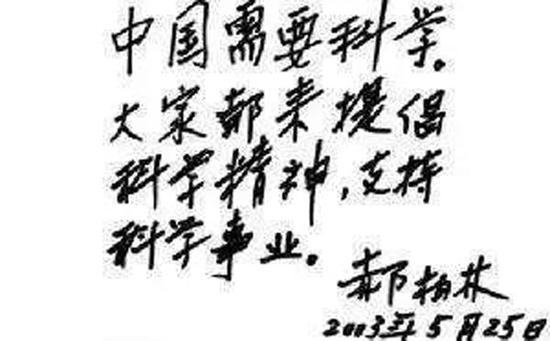 中国需要科学。
大家都来提倡
科学精神，支持
科学事业。
郝柏林
2003年5月25日